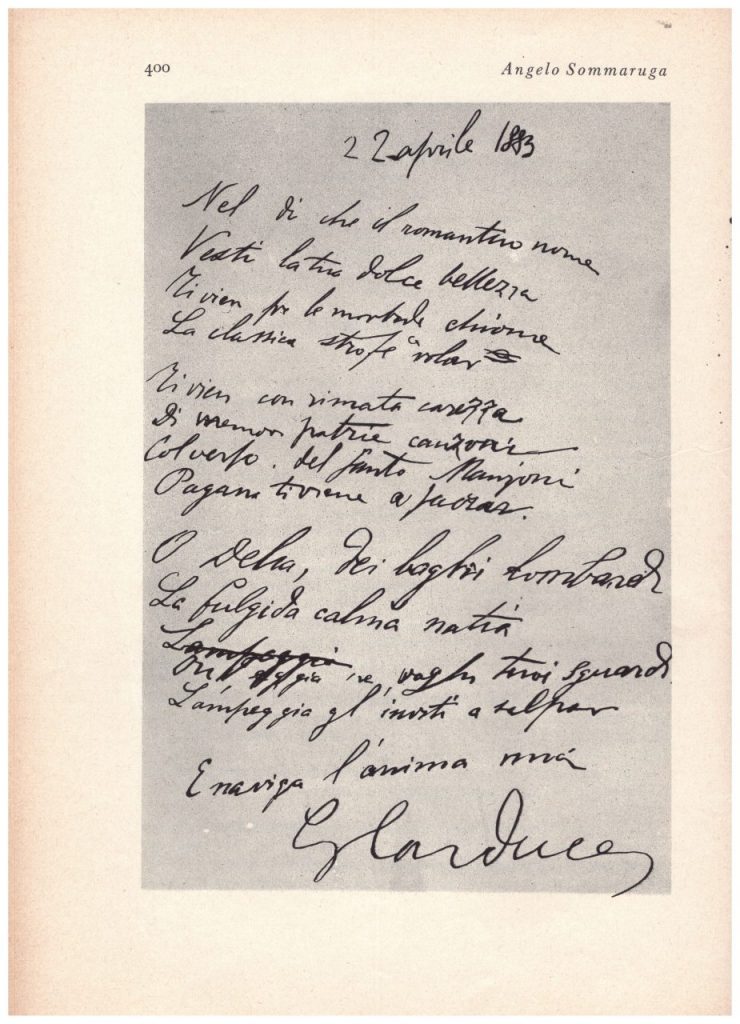 400
Angelo Sommaruga
22 aprile 1883
Nel dì che il romantico nome
Vestì la tua dolce bellezza
Ti vien per le morbide chiome
La classica strofe a volar
Ti vien con rimata carezza
Di memori patrie canzoni
Col verso del santo Manzoni
Pagana ti viene a
O Delia, dei laghi lombardi
La fulgida calma natia
Lampeggia
ne vaghi tuoi sguardi
Lampeggia gl' inviti a salpar
E naviga l'anima mia
G Carducci